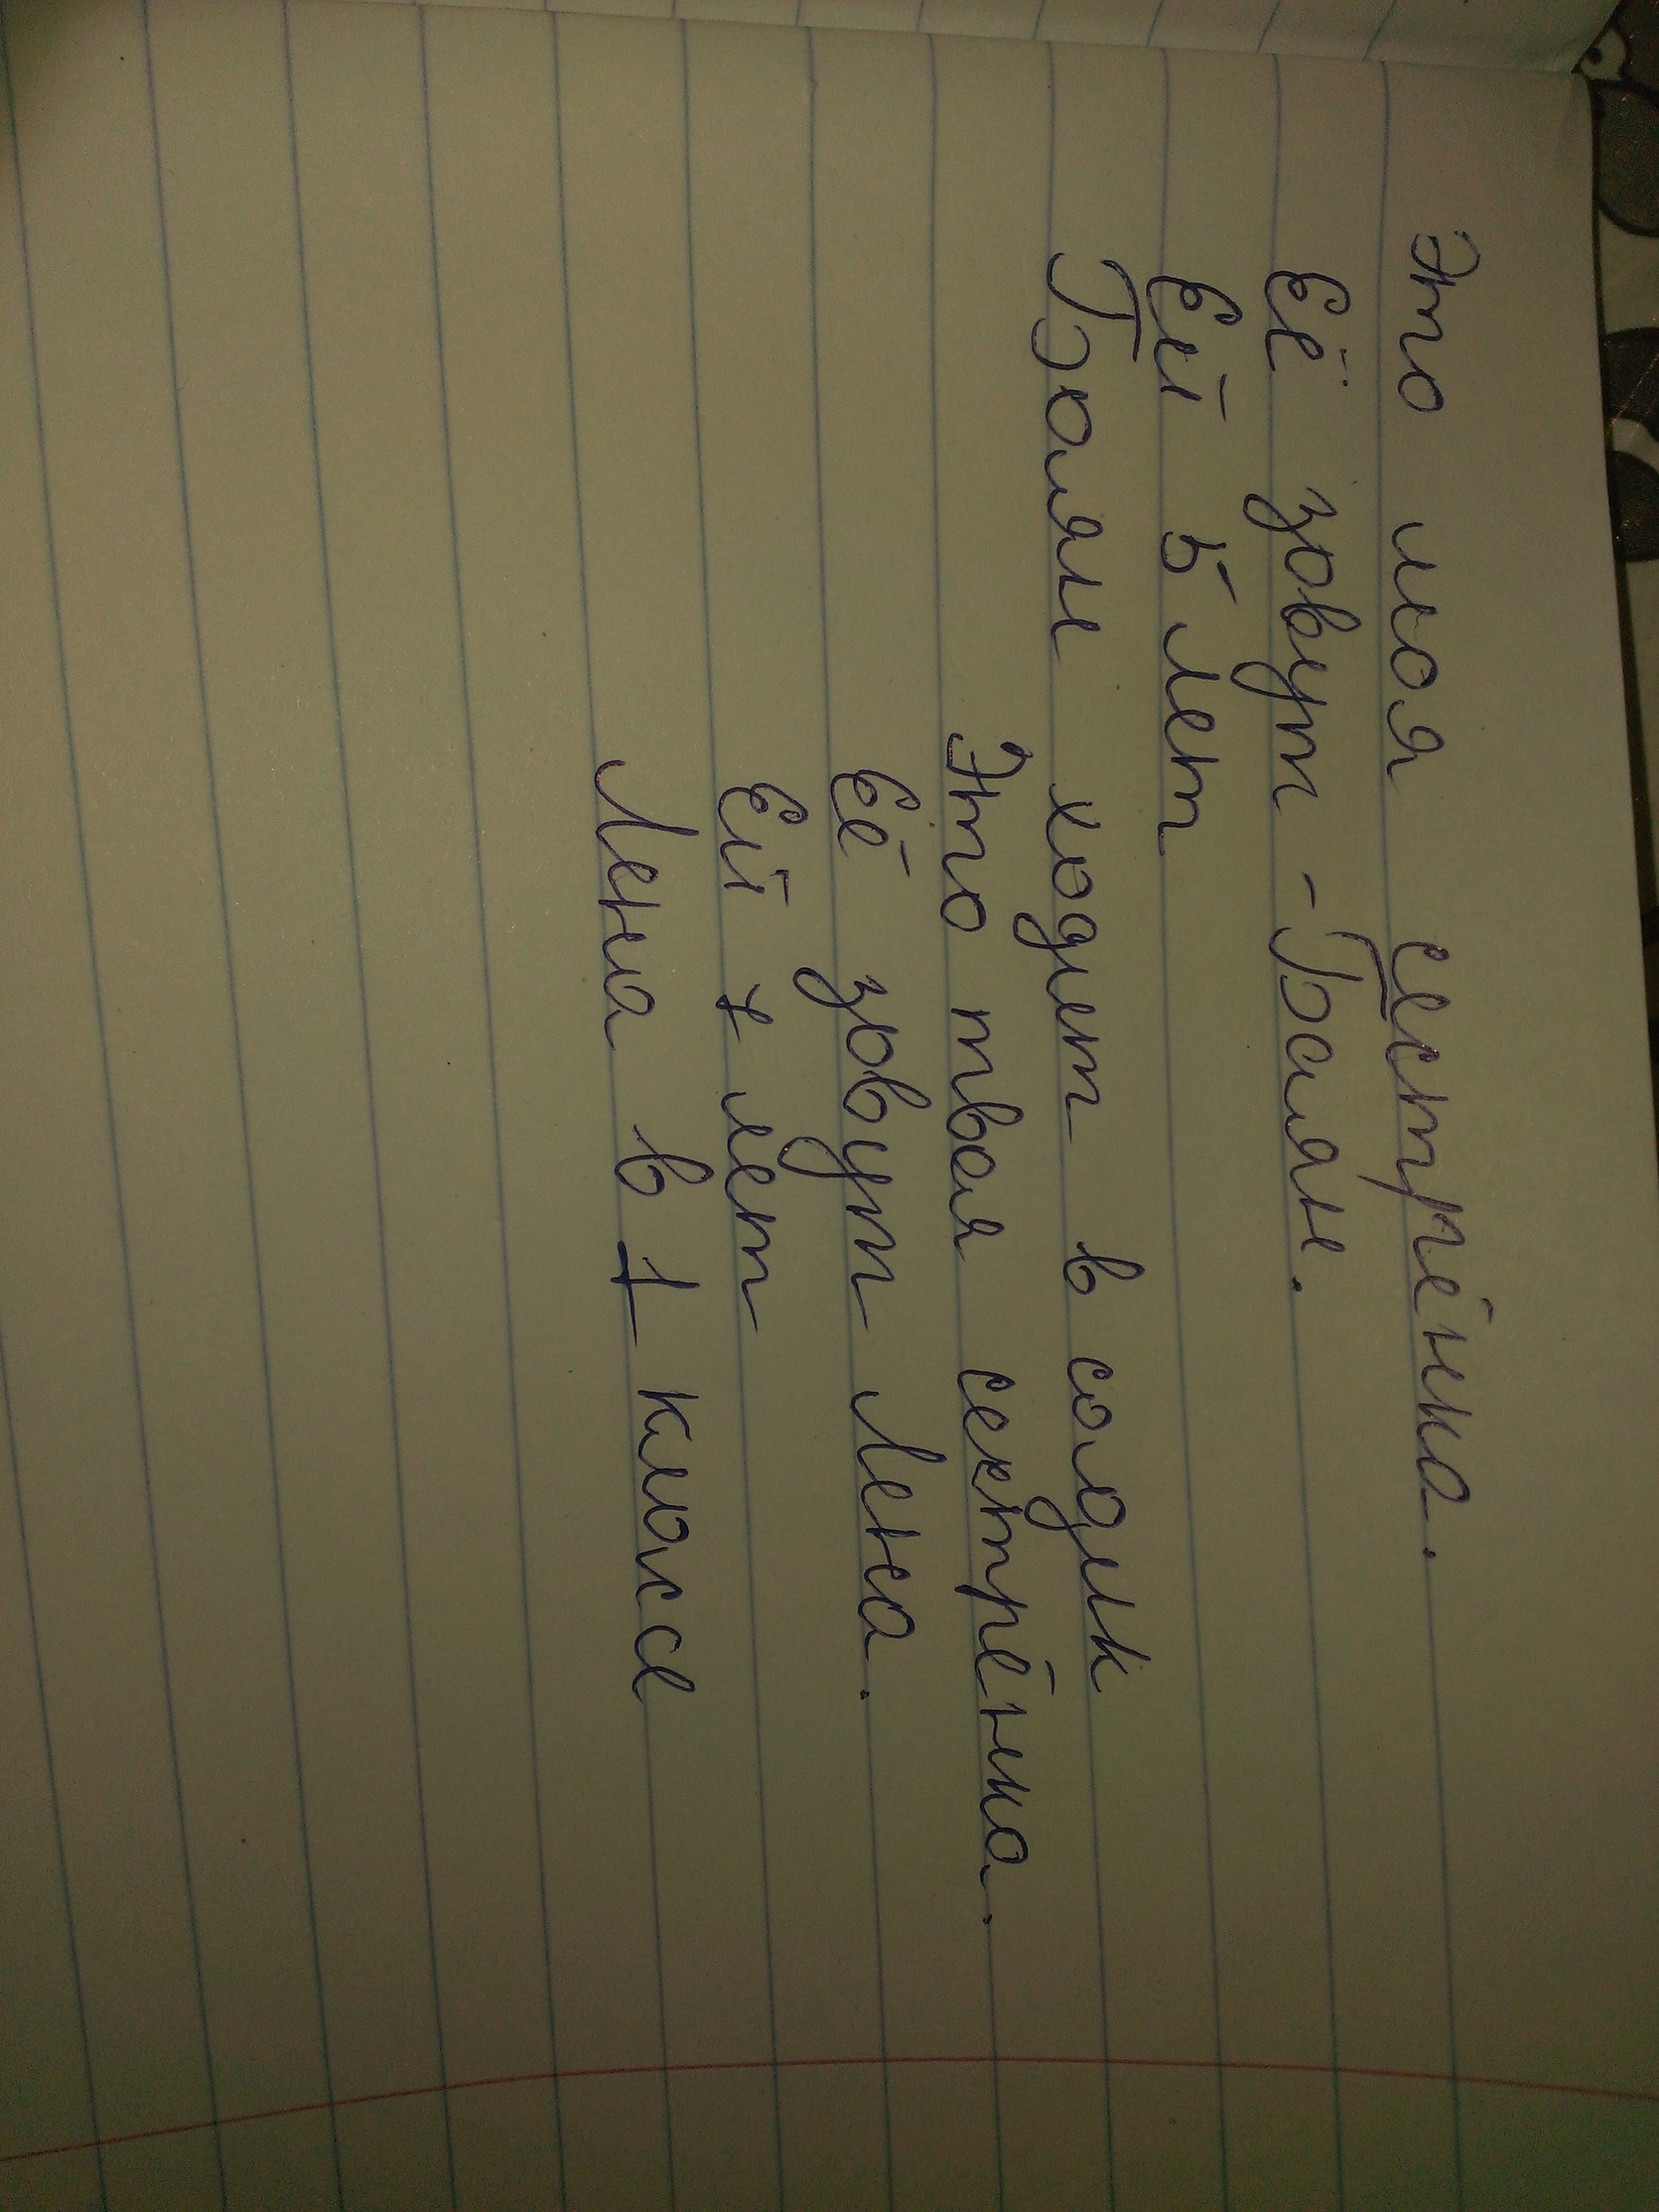 Это моя сестрёнка.
Её зовут - Баян.
Ей 5 лет
Баян ходит в садик
Это твоя сектрёнка.
Её зовут Лена.
Ей 7 лет
Лена в 1 классе